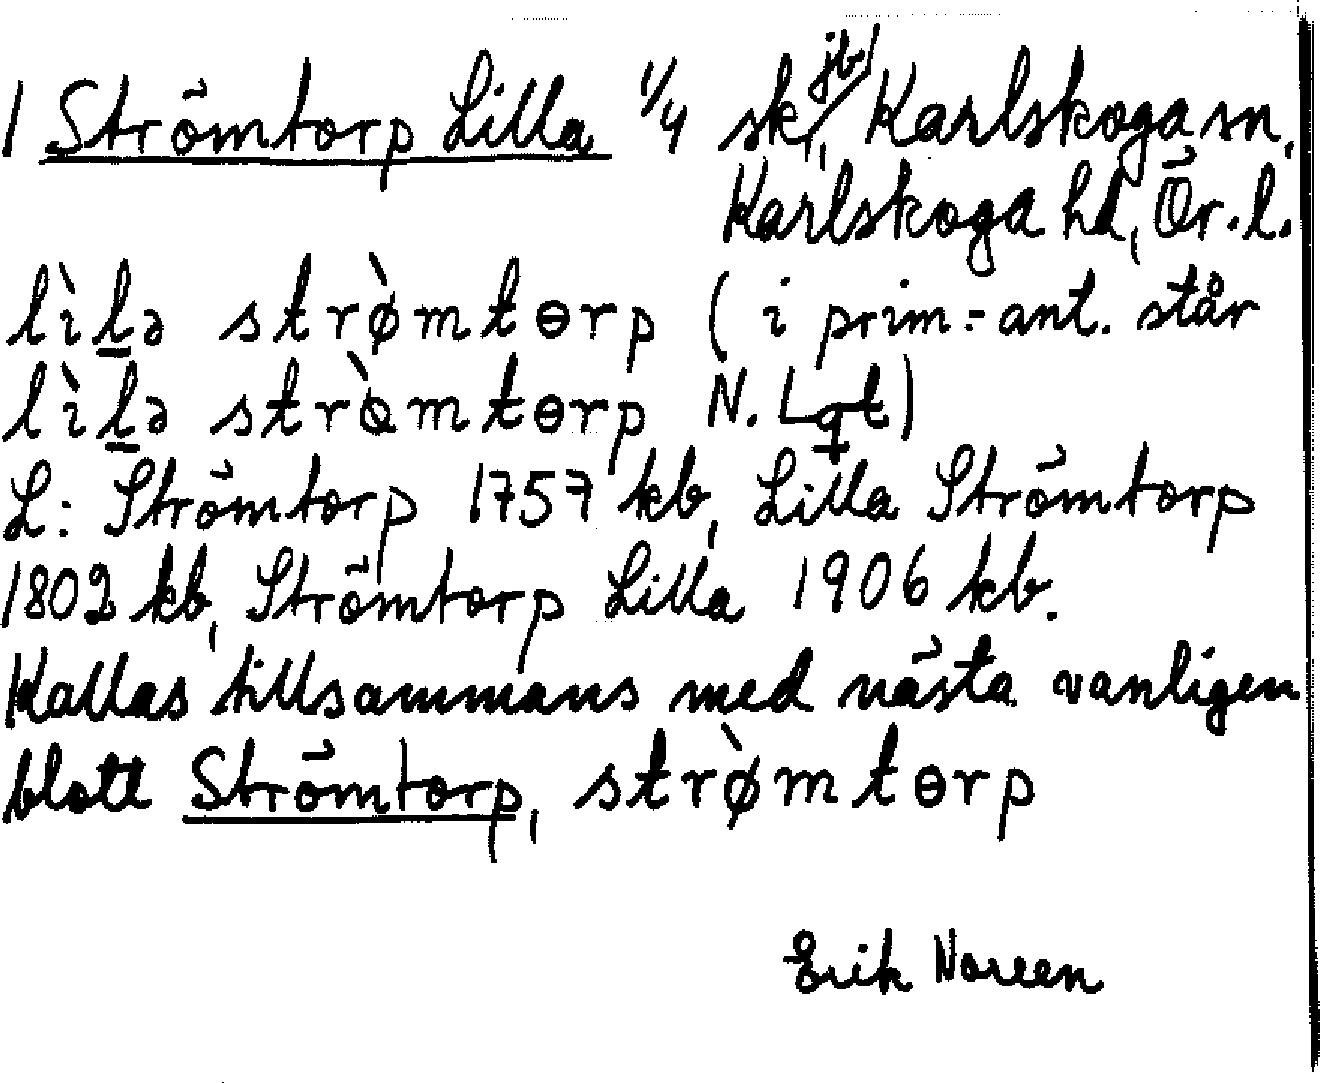 1 Strömtorp Lilla 1/4 sk, jb/ Karlskoga sn,
Karlskoga hd, Ör. l.
lìlə strø̀mtɵrp (i prim.-ant. står
lìlə strɵ̀mtɵrp N. Lqt)
L: Strömtorp 1757 kb, Lilla Strömtorp
1802 kb, Strömtorp Lilla 1906 kb.
Kallas tillsammans med nästa vanligen
blott Strömtorp, strø̀mtɵrp
Erik Noreen